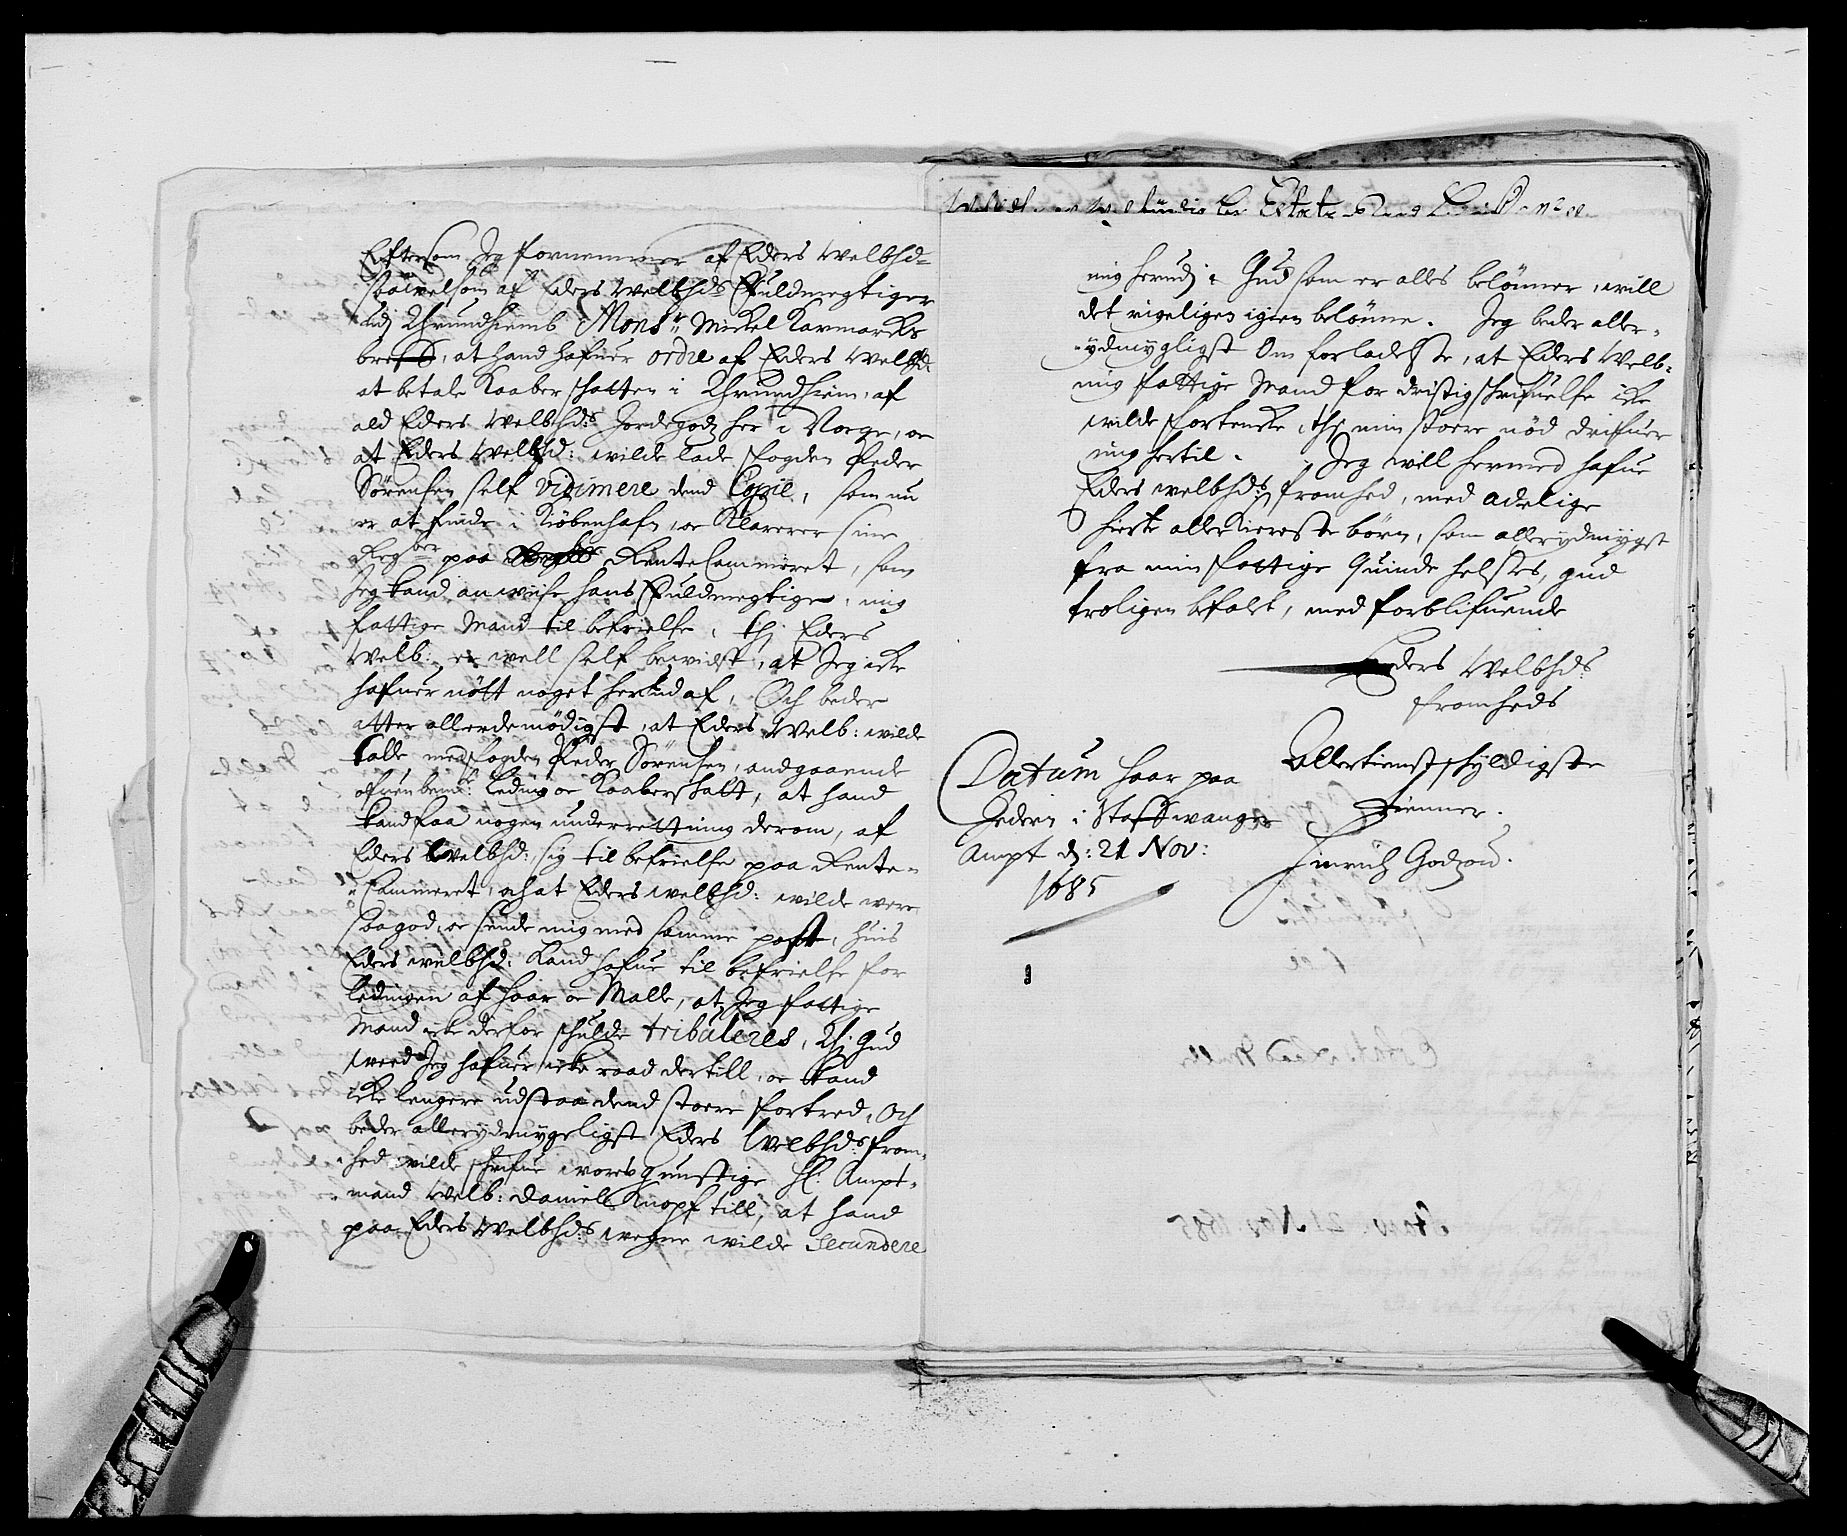 Eftersom Jeg fornemmer af Eders Welbhd=
saavelsom af Eders Welbhds Fuldmegtiger
udj Thrundhiemb Mons:r Mickel Karmarcks
breff, at hand hafuer ordre af Eders Welbhd:
at betale Kaaberschatten i Thrundhiem, af
ald Eders Welbhds: Jordegodz her i Norge, oc
at Eders Welbhd: wilde lade fogden Peder
Sörensen self Vidimere dend Copie, som nu
er at finde i Kiöbenhafn, oc Klarerer sine
Regber paa RenteCammeret, som
Jeg kand anwiise hans Fuldmegtige, mig
fattige Mand til befrielse, thj Eders
Welb: er well self bewidst, at Jeg icke
hafuer nött noget her udaf, Och beder
atter allerdemödigst, at Eders Welb: wilde
talle med fogden Peder Sörensen, andgaaende
ofrenbemt: leding oc Kaaberskatt, at hand
kand faa nogen underrettning derom, af
Eders Welbhd: sig til befrielse paa Rente=
Cammeret, och at Eders welbhd: wilde were
saa god, oc sende mig med samme post, huis
Eders welbhd: kand hafue til befrielse for
ledingen af haar oc Malle, at Jeg fattige
Mand icke derfor schulde tribuleres, Thj Gud
weed Jeg hafuer icke raad dertill, oc kand
icke lengere udstaa dend stoere fortred, Och
beder allerydmygeligst Eders Welbhds: from=
hed wilde schrifue wores gunstige Hl: Ampt=
mand Welb: Daniell Knopf till, at hand
paa Eders Welbhds: wegne wilde Secundere
mig herudj, Gud som er alles belönner, will
det rigeligen igien belönne. Jeg beder aller=
ydmygligst Om forladelsse, at Eders Welb:
mig fattige Mand for dristigschrifuelse icke
wilde fortencke, thj min stoere nöd drifuer
mig hertil. Jeg will hermed hafue
Eders welbhds: fromhed, med adelige
hierte allerkiereste börn, som allerydmygst
fra min fattige Quinde helses, gud
troligen befalet, med forblifuende
Eders Welbhds:
fromheds
Allertienstschyldigste
Tienner.
Hinrich Godzou.
Datum haar paa
Jedern i Staffwanger
Ampt d: 21 Nov:
1685